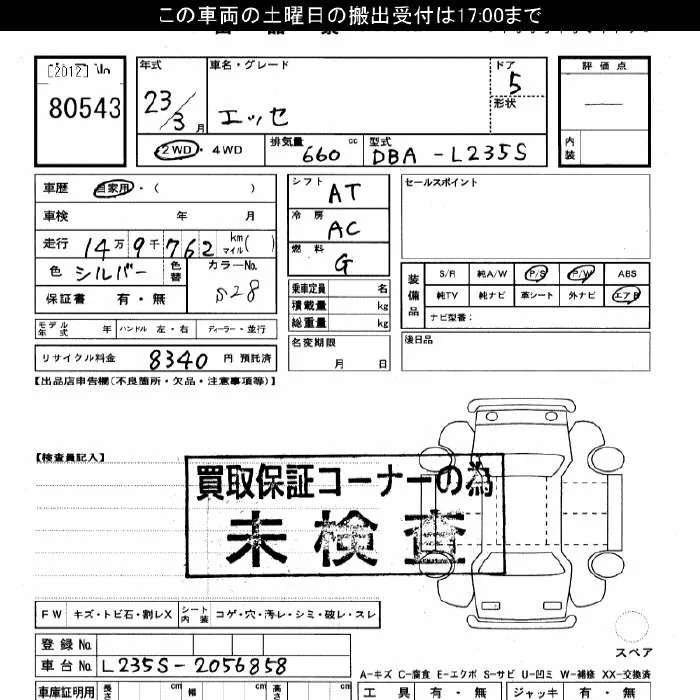 この車両の土曜日の搬出受付は17:00まで
[2012]
80543
年式
23/3月
車名・グレード
エッセ
ドア
5
形状
評価点
内装
2WD・4WD
排気量 660 cc
型式 DBA-L235S
車歴 自家用・( )
車検 年 月
走行 14万9千762 km マイル( )
色 シルバー 色替
カラーNo. S28
保証書 有・無
シフト AT
冷房 AC
燃料 G
乗車定員 名
積載量 kg
総重量 kg
セールスポイント
装備品
S/R 純A/W P/S P/W ABS
純TV 純ナビ 革シート 外ナビ エアB
ナビ型番:
モデル年式 年 ハンドル 左・右 ディーラー・並行
名変期限
月 日
後日品
リサイクル料金 8340 円 預託済
【出品店申告欄(不良箇所・欠品・注意事項等)】
【検査員記入】
買取保証コーナーの為
未検査
FW キズ・トビ石・割レX
シート内装 コゲ・穴・汚レ・シミ・破レ・スレ
スペア
登録No.
車台No. L235S-2056858
A-キズ C-腐食 E-エクボ S-サビ U-凹ミ W-補修 XX-交換済
車庫証明用 長さ cm 幅 cm 高さ cm
工具 有・無 ジャッキ 有・無